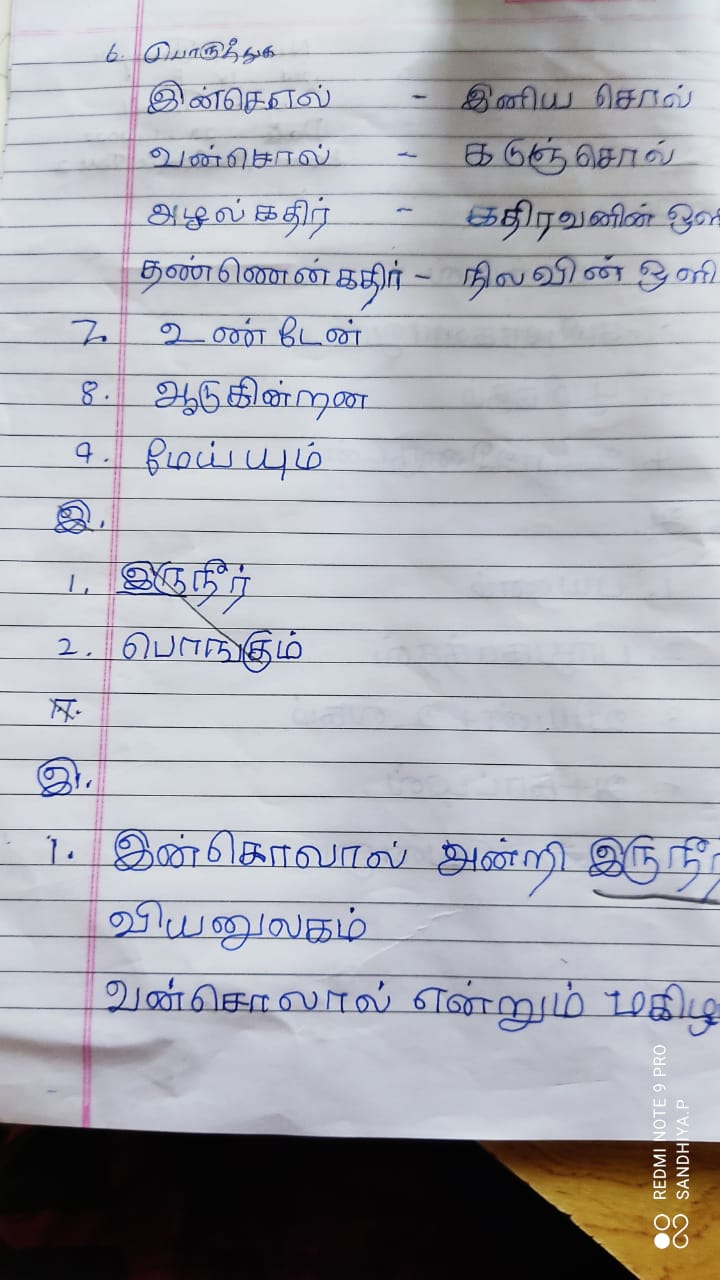 6. பொருத்துக
இன்சொல் - இனிய சொல்
வன்சொல் - கடுஞ்சொல்
அழல்கதிர் - கதிரவனின் ஒளி
தண்ணென்கதிர் - நிலவின் ஒளி
7. உண்டேன்
8. ஆடுகின்றன
9. மேய்யும்
இ.
1. இருநீர்
2. பொங்கும்
ஈ.
இ.
1. இன்கொலால் அன்றி இருநீர்
வியனுலகம்
வன்சொலால் என்றும் மகிழ
REDMI NOTE 9 PRO
SANDHIYA.P